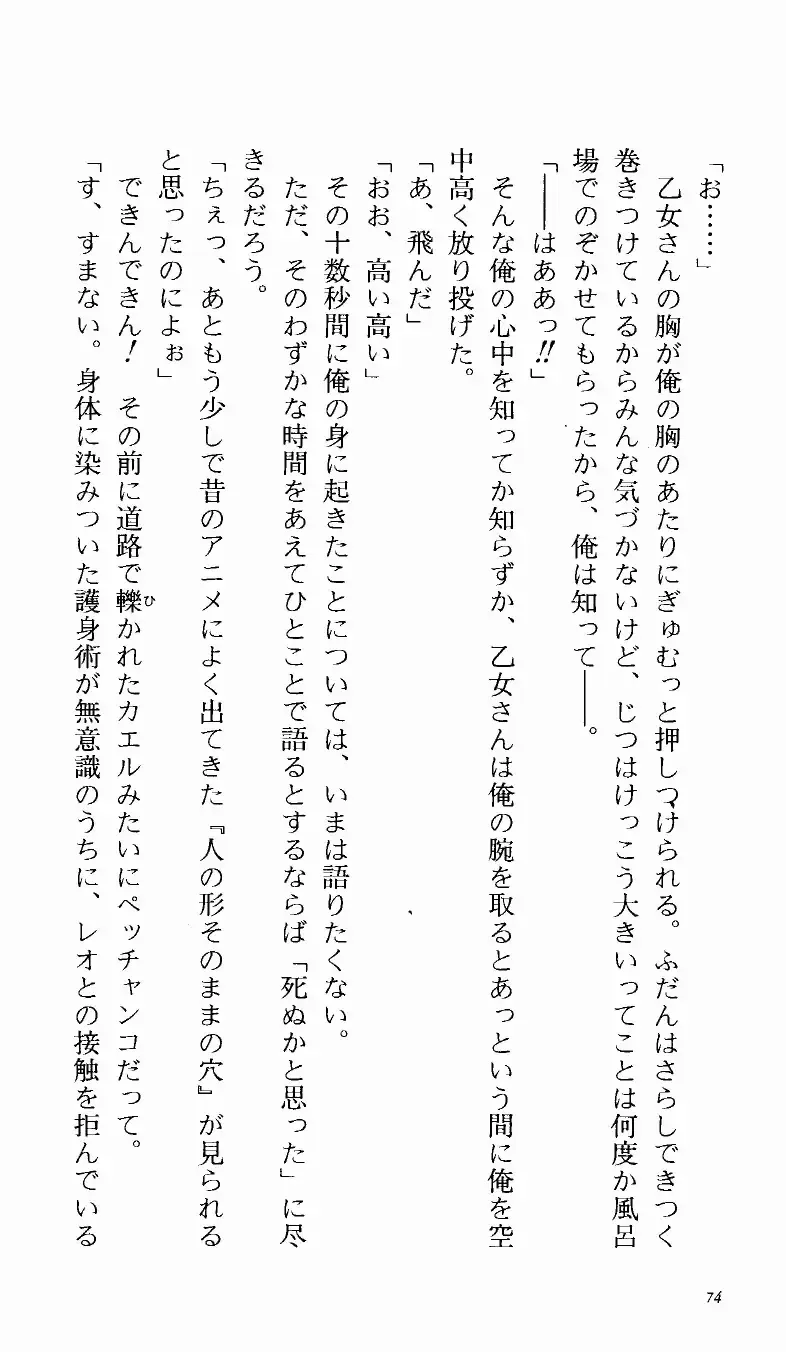 「お……」
　乙女さんの胸が俺の胸のあたりにぎゅむっと押しつけられる。ふだんはさらしできつく
巻きつけているからみんな気づかないけど、じつはけっこう大きいってことは何度か風呂
場でのぞかせてもらったから、俺は知って――。
「――はああっ!!」
　そんな俺の心中を知ってか知らずか、乙女さんは俺の腕を取るとあっという間に俺を空
中高く放り投げた。
「あ、飛んだ」
「おお、高い高い」
　その十数秒間に俺の身に起きたことについては、いまは語りたくない。
　ただ、そのわずかな時間をあえてひとことで語るとするならば「死ぬかと思った」に尽
きるだろう。
「ちぇっ、あともう少しで昔のアニメによく出てきた『人の形そのままの穴』が見られる
と思ったのによぉ」
　できんできん！　その前に道路で轢かれたカエルみたいにペッチャンコだって。
ひ
「す、すまない。身体に染みついた護身術が無意識のうちに、レオとの接触を拒んでいる
74